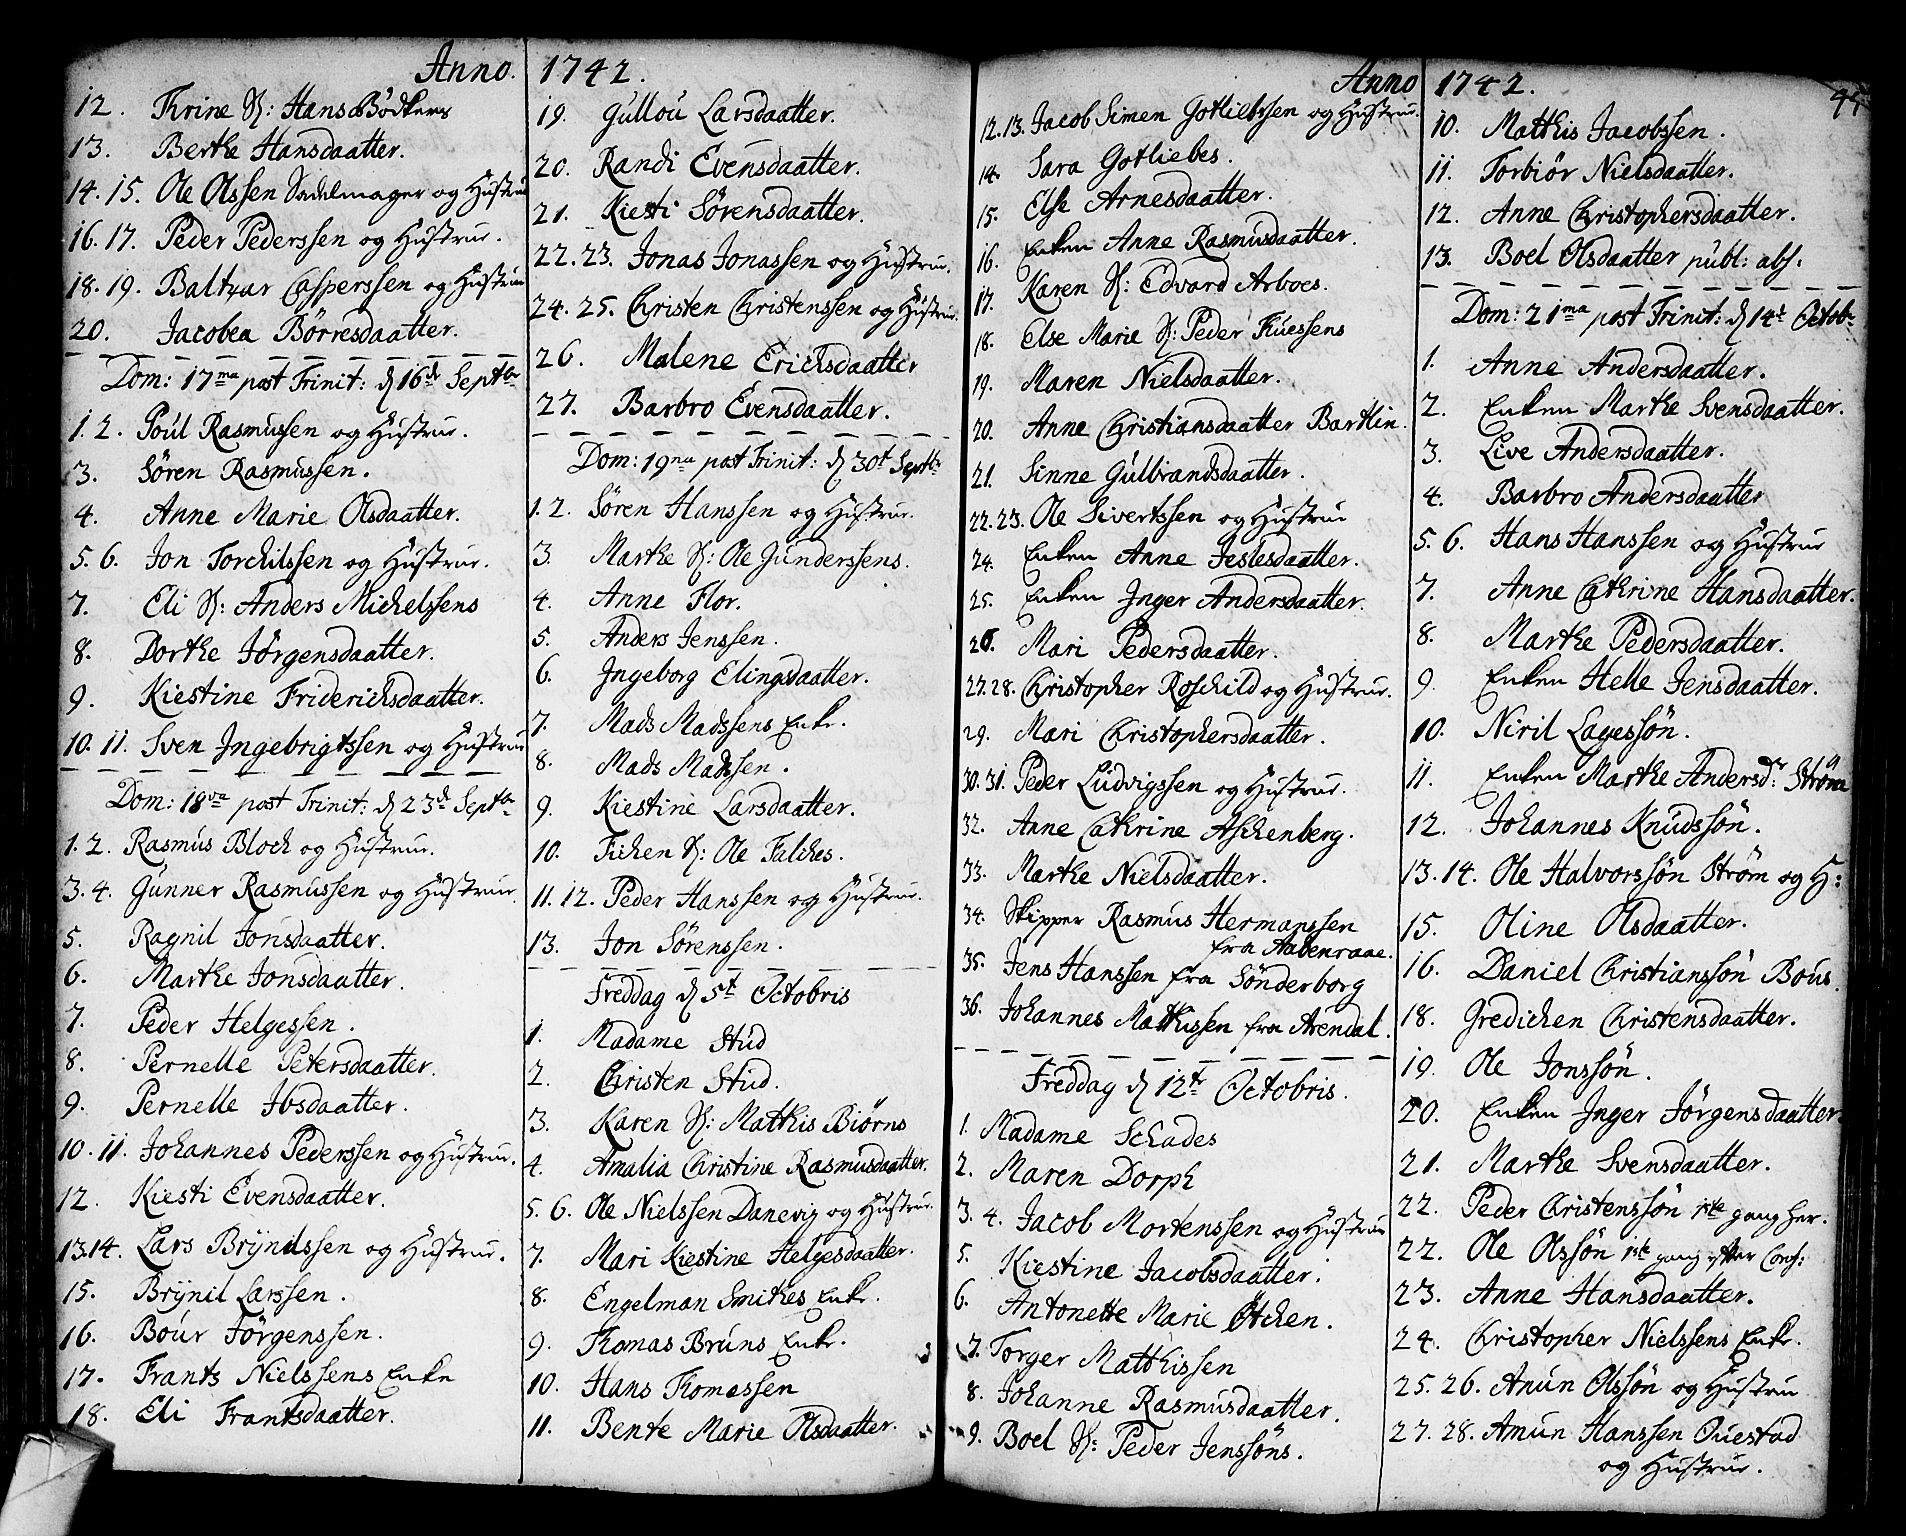 Anno. 1742.
12. Thrine S: Hans Bödkers
13. Berthe Hansdaatter.
14. 15. Ole Olssen Sadelmager og Hustrue
16. 17. Peder Pederssen og Hustrue.
18. 19. Baltzar Casperssen og Hustrue
20. Jacobea Börresdaatter.
Dom: 17ma post Trinit: d 16d Septbr
1. 2. Poul Rasmussen og Hustrue.
3. Sören Rasmussen.
4. Anne Marie Olsdaatter.
5. 6. Jon Torchilssen og Hustrue.
7. Eli S: Anders Michelssens
8. Dorthe Jörgensdaatter.
9. Kiestine Friderichsdaatter.
10. 11. Sven Ingebrigtssen og Hustrue
Dom: 18va post Trinit: d 23d Septbr
1. 2. Rasmus Bloch og Hustrue.
3. 4. Gunner Rasmussen og Hustrue.
5. Ragnil Jonsdaatter.
6. Marthe Jonsdaatter.
7. Peder Helgessen.
8. Pernelle Petersdaatter.
9. Pernelle Ibsdaatter.
10. 11. Johannes Pederssen og Hustrue.
12. Kiesti Evensdaatter.
13. 14. Lars Brynilssen og Hustrue.
15. Brynil Larssen.
16. Bour Jörgenssen.
17. Frants Nielssens Enke
18. Eli Frantsdaatter.
19. Gullou Larsdaatter.
20. Randi Evensdaatter.
21. Kiesti Sörensdaatter.
22. 23. Jonas Jonassen og Hustrue.
24. 25. Christen Christenssen og Hustrue.
26. Malene Erichsdaatter
27. Barbro Evensdaatter.
Dom: 19na post Trinit: d 30t Septbr
1. 2. Sören Hanssen og Hustrue.
3. Marthe S: Ole Gunderssens.
4. Anne Flor.
5. Anders Jenssen.
6. Ingeborg Elingsdaatter.
7. Mads Madssens Enke.
8. Mads Madssen.
9. Kiestine Larsdaatter.
10. Fichen S: Ole Falches.
11. 12. Peder Hanssen og Hustrue.
13. Jon Sörenssen.
Freddag d 5t Octobris
1. Madame Stud
2. Christen Stud.
3. Karen S: Mathis Biörns
4. Amalia Christine Rasmusdaatter.
5. 6. Ole Nielssen Danevig og Hustrue.
7. Mari Kiestine Helgesdaatter.
8. Engelman Smithes Enke.
9. Thomas Bruns Enke.
10. Hans Thomassen
11. Bente Marie Olsdaatter.
Anno 1742.
12. 13. Jacob Simen Gotliebssen og Hustrue.
14. Sara Gotliebes.
15. Else Arnesdaatter.
16. Enken Anne Rasmusdaatter.
17. Karen S: Edvard Arboes.
18. Else Marie S: Peder Thuessens
19. Maren Nielsdaatter.
20. Anne Christiansdaatter Barthin.
21. Sinne Gulbrandsdaatter.
22. 23. Ole Sivertssen og Hustrue
24. Enken Anne Jeslesdaatter.
25. Enken Inger Andersdaatter.
26. Mari Pedersdaatter.
27. 28. Christopher Roschild og Hustrue.
29. Mari Christophersdaatter.
30. 31. Peder Ludvigssen og Hustrue.
32. Anne Cathrine Aschenberg.
33. Marthe Nielsdaatter.
34. Skipper Rasmus Hermanssen
fra Aabenraae.
35. Jens Hanssen fra Sönderborg
36. Johannes Mathissen fra Arendal.
Freddag d 12te Octobris.
1. Madame Schades
2. Maren Dorph
3. 4. Jacob Mortenssen og Hustrue
5. Kiestine Jacobsdaatter.
6. Antonette Marie Ötchen.
7. Torger Matthissen
8. Johanne Rasmusdaatter.
9. Boel S: Peder Jenssöns.
10. Matthis Jacobssen.
11. Torbiör Nielsdaatter.
12. Anne Christophersdaatter.
13. Boel Olsdaatter publ: abs:
Dom: 21ma post Trinit: d 14t Octobr
1. Anne Andersdaatter.
2. Enken Marthe Svensdaatter.
3. Live Andersdaatter.
4. Barbro Andersdaatter
5. 6. Hans Hanssen og Hustrue
7. Anne Cathrine Hansdaatter.
8. Marthe Pedersdaatter.
9. Enken Helle Jensdaatter.
10. Niril Lagessön.
11. Enken Marthe Andersdr: Ström
12. Johannes Knudssön.
13. 14. Ole Halvorssön Ström og H:
15. Oline Olsdaatter.
16. Daniel Christianssön Bous.
18. Gredichen Christensdaatter.
19. Ole Jonssön.
20. Enken Inger Jörgensdaatter.
21. Marthe Svensdaatter.
22. Peder Christenssön 1ste gang her.
22. Ole Olssön 1ste gang efter Conf:
23. Anne Hansdaatter.
24. Christopher Nielssens Enke.
25. 26. Amun Olssön og Hustrue
27. 28. Amun Hanssen Questad
og Hustrue.